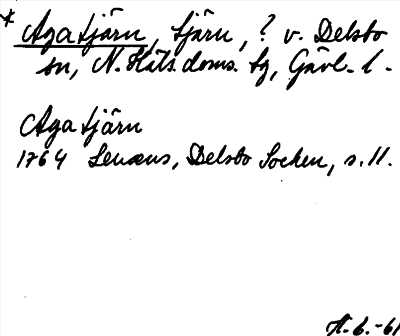 * Agatjärn, tjärn, ? v. Delsbo
sn, N. Häls. doms. tg, Gävl. l.
Agatjärn
1764 Lenæus, Delsbo Socken, s. 11.
H. 6. -61